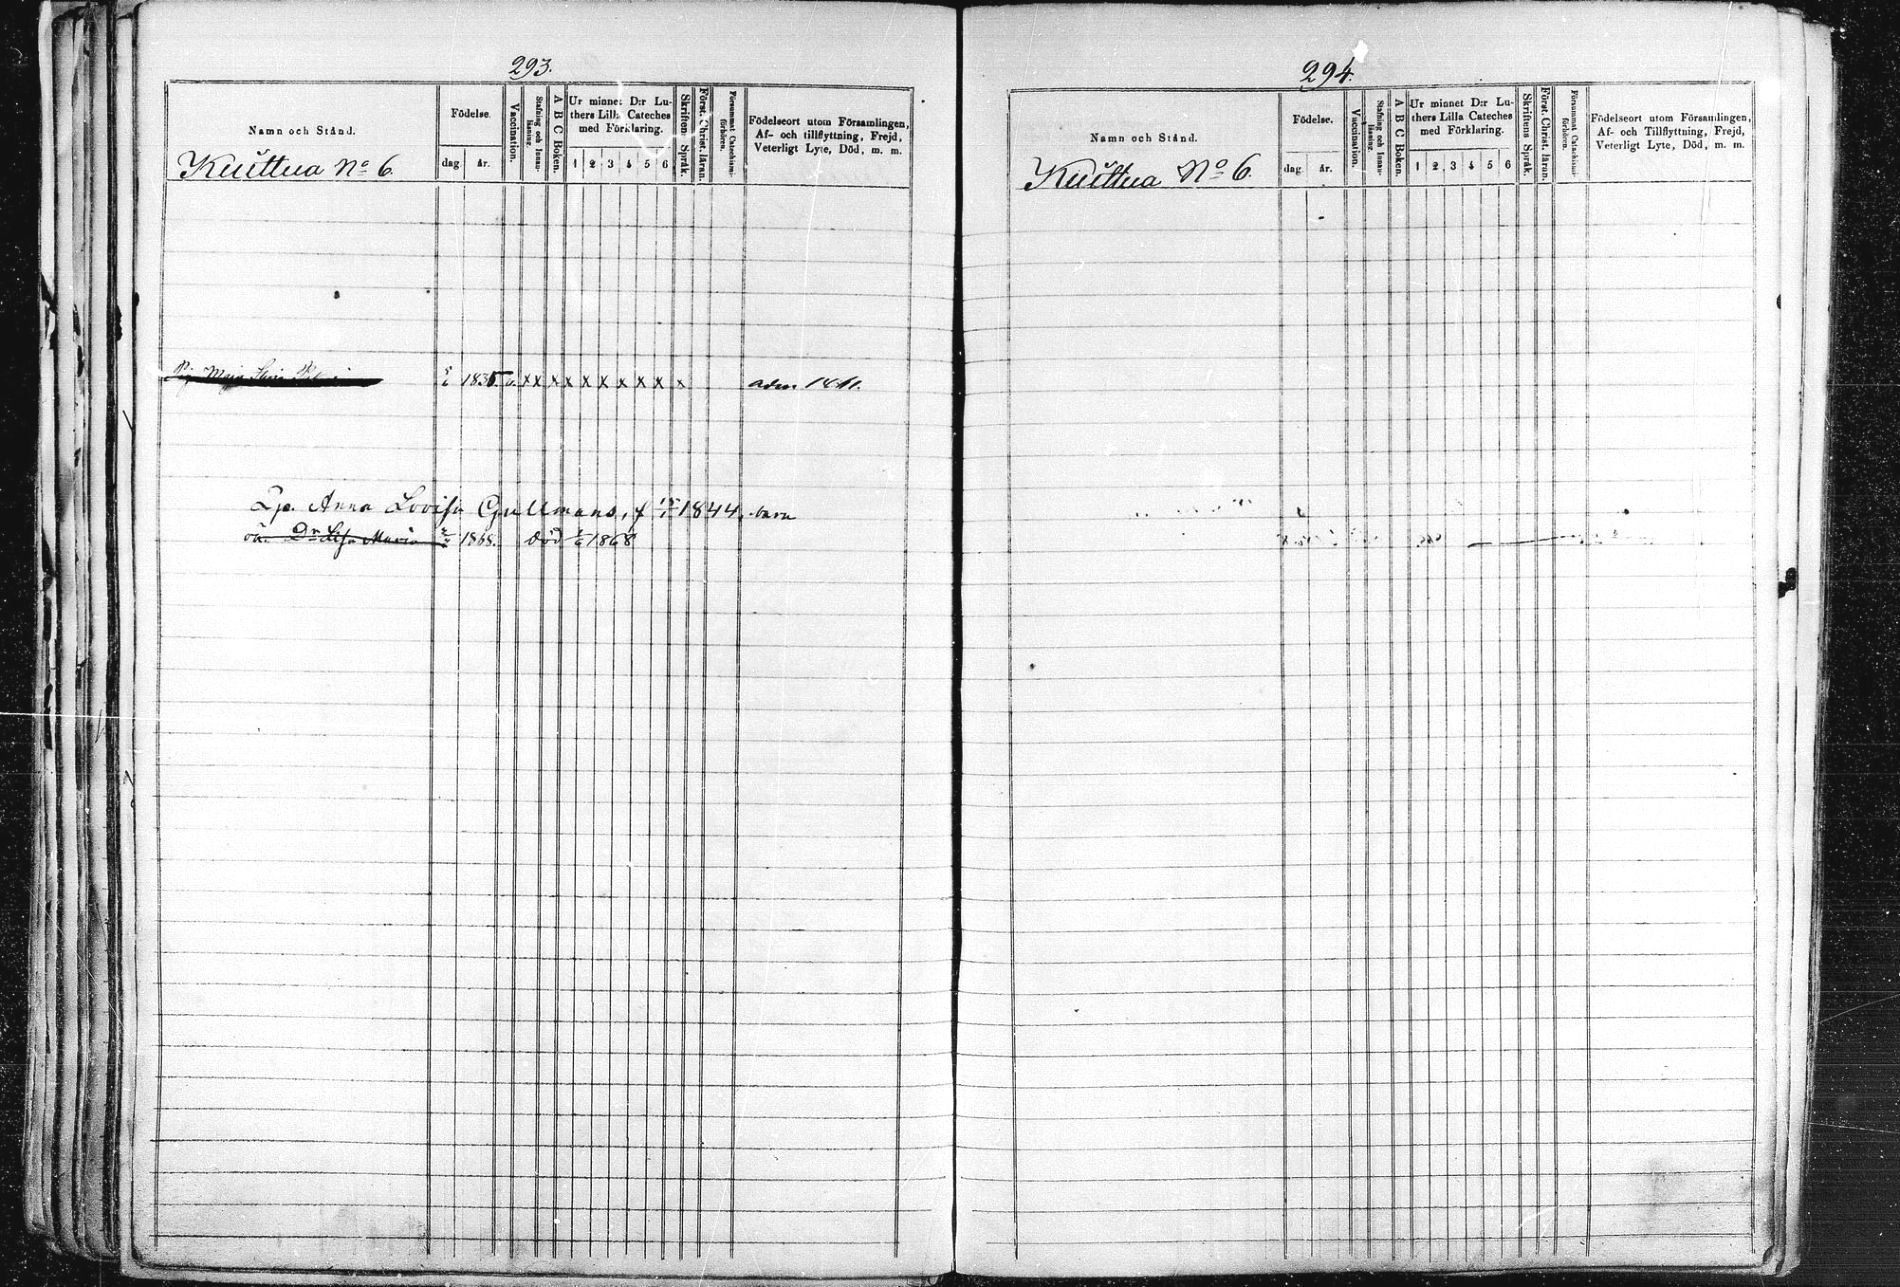 293.
Namn och Stånd.
Kuittua No 6.
Födelse.
dag. år.
Vaccination.
Stafning och Innanläsning.
A B C Boken.
Ur minnet D:r Luthers Lilla Cateches med Förklaring.
1 2 3 4 5 6
Skriftens Språk.
Först. Christ. läran.
Försummat Catechismiförhören.
Födelseort utom Församlingen,
Af- och tillflyttning, Frejd,
Veterligt Lyte, Död, m. m.
Maja 1835 v. x x x x x x x x x x
Anna Lovisa Gullmans, 1844, barn
oä. Dr Maria 1868. död 1868
294.
Namn och Stånd.
Kuittua No 6.
Födelse.
dag. år.
Vaccination.
Stafning och Innanläsning.
A B C Boken.
Ur minnet D:r Luthers Lilla Cateches med Förklaring.
1 2 3 4 5 6
Skriftens Språk.
Först. Christ. läran.
Försummat Catechismiförhören.
Födelseort utom Församlingen,
Af- och Tillflyttning, Frejd,
Veterligt Lyte, Död, m. m.